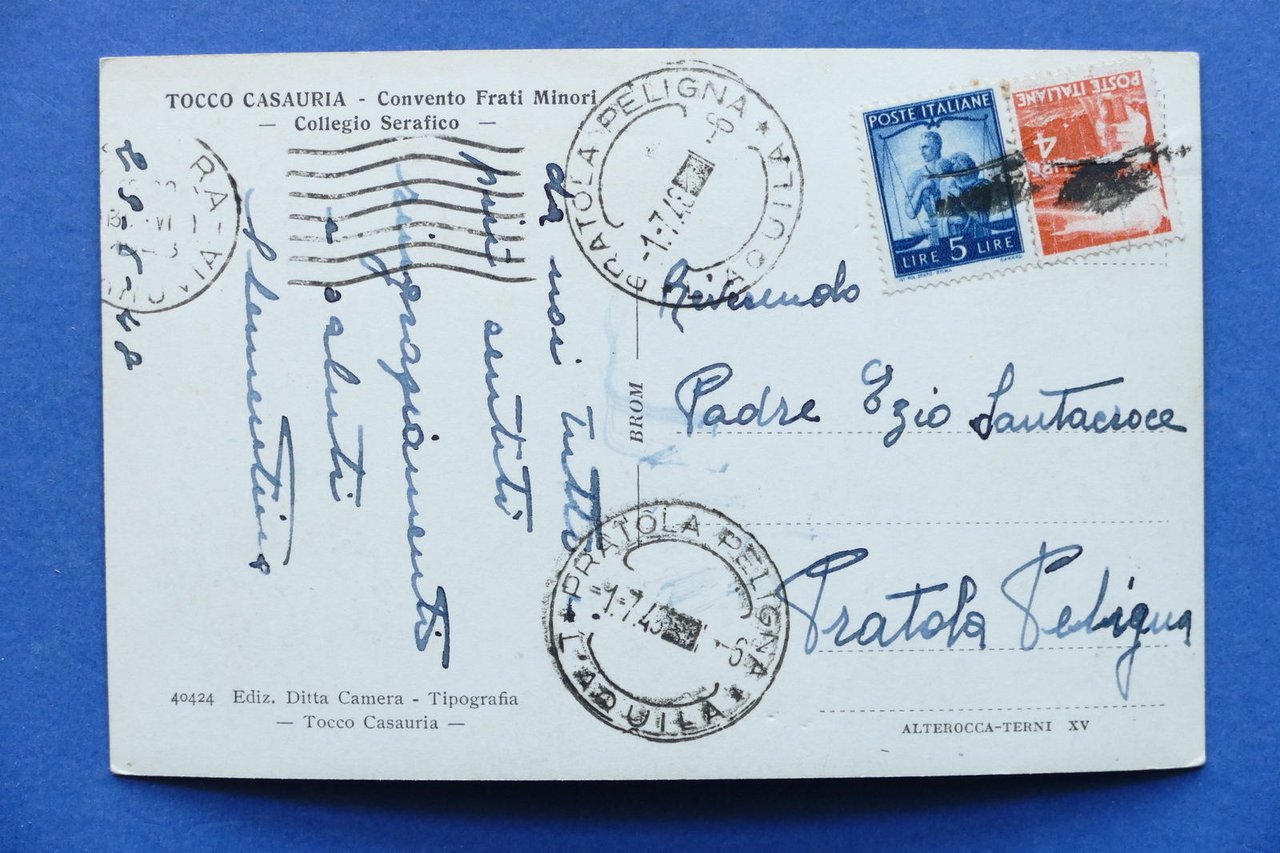 TOCCO CASAURIA - Convento Frati Minori
— Collegio Serafico —
da noi tutti
più sentiti
ringraziamenti
e saluti
29-6-48
PRATOLA PELIGNA ★ AQUILA
-1-7.48
POSTE ITALIANE
LIRE 5 LIRE
POSTE ITALIANE
4
Reverendo
Padre Ezio Santacroce
Pratola Peligna
BROM
★ PRATOLA PELIGNA ★ AQUILA
-1-7.48
40424 Ediz. Ditta Camera - Tipografia
— Tocco Casauria —
ALTEROCCA-TERNI XV